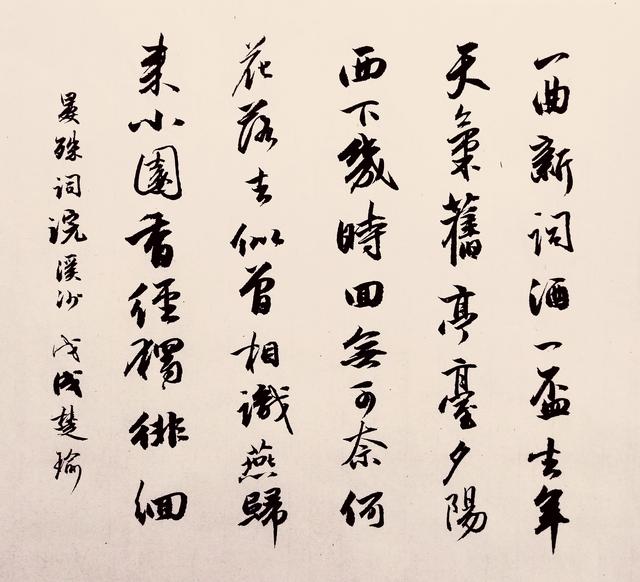 一曲新詞酒一盃去年
天氣舊亭臺夕陽
西下幾時回無可奈何
花落去似曾相識燕歸
來小園香徑獨徘徊
晏殊詞浣溪沙 戊戌楚瑜